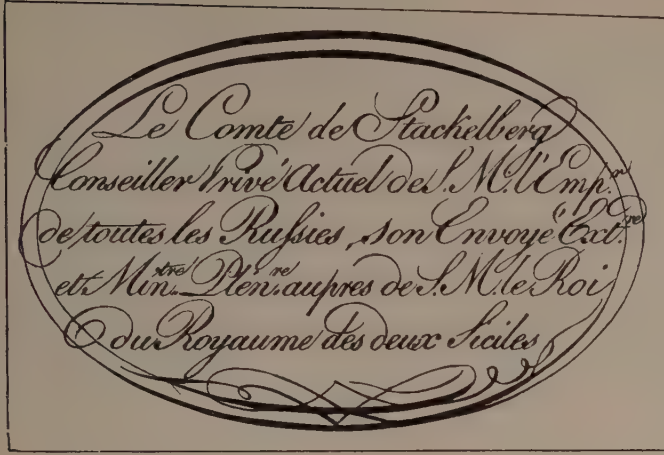 Le Comte de Stackelberg
Conseiller Privé Actuel de S. M. l'Emp.r
de toutes les Russies, son Envoyé Ext.re
et Min.tre Plén.re aupres de S. M. le Roi
du Royaume des deux Siciles